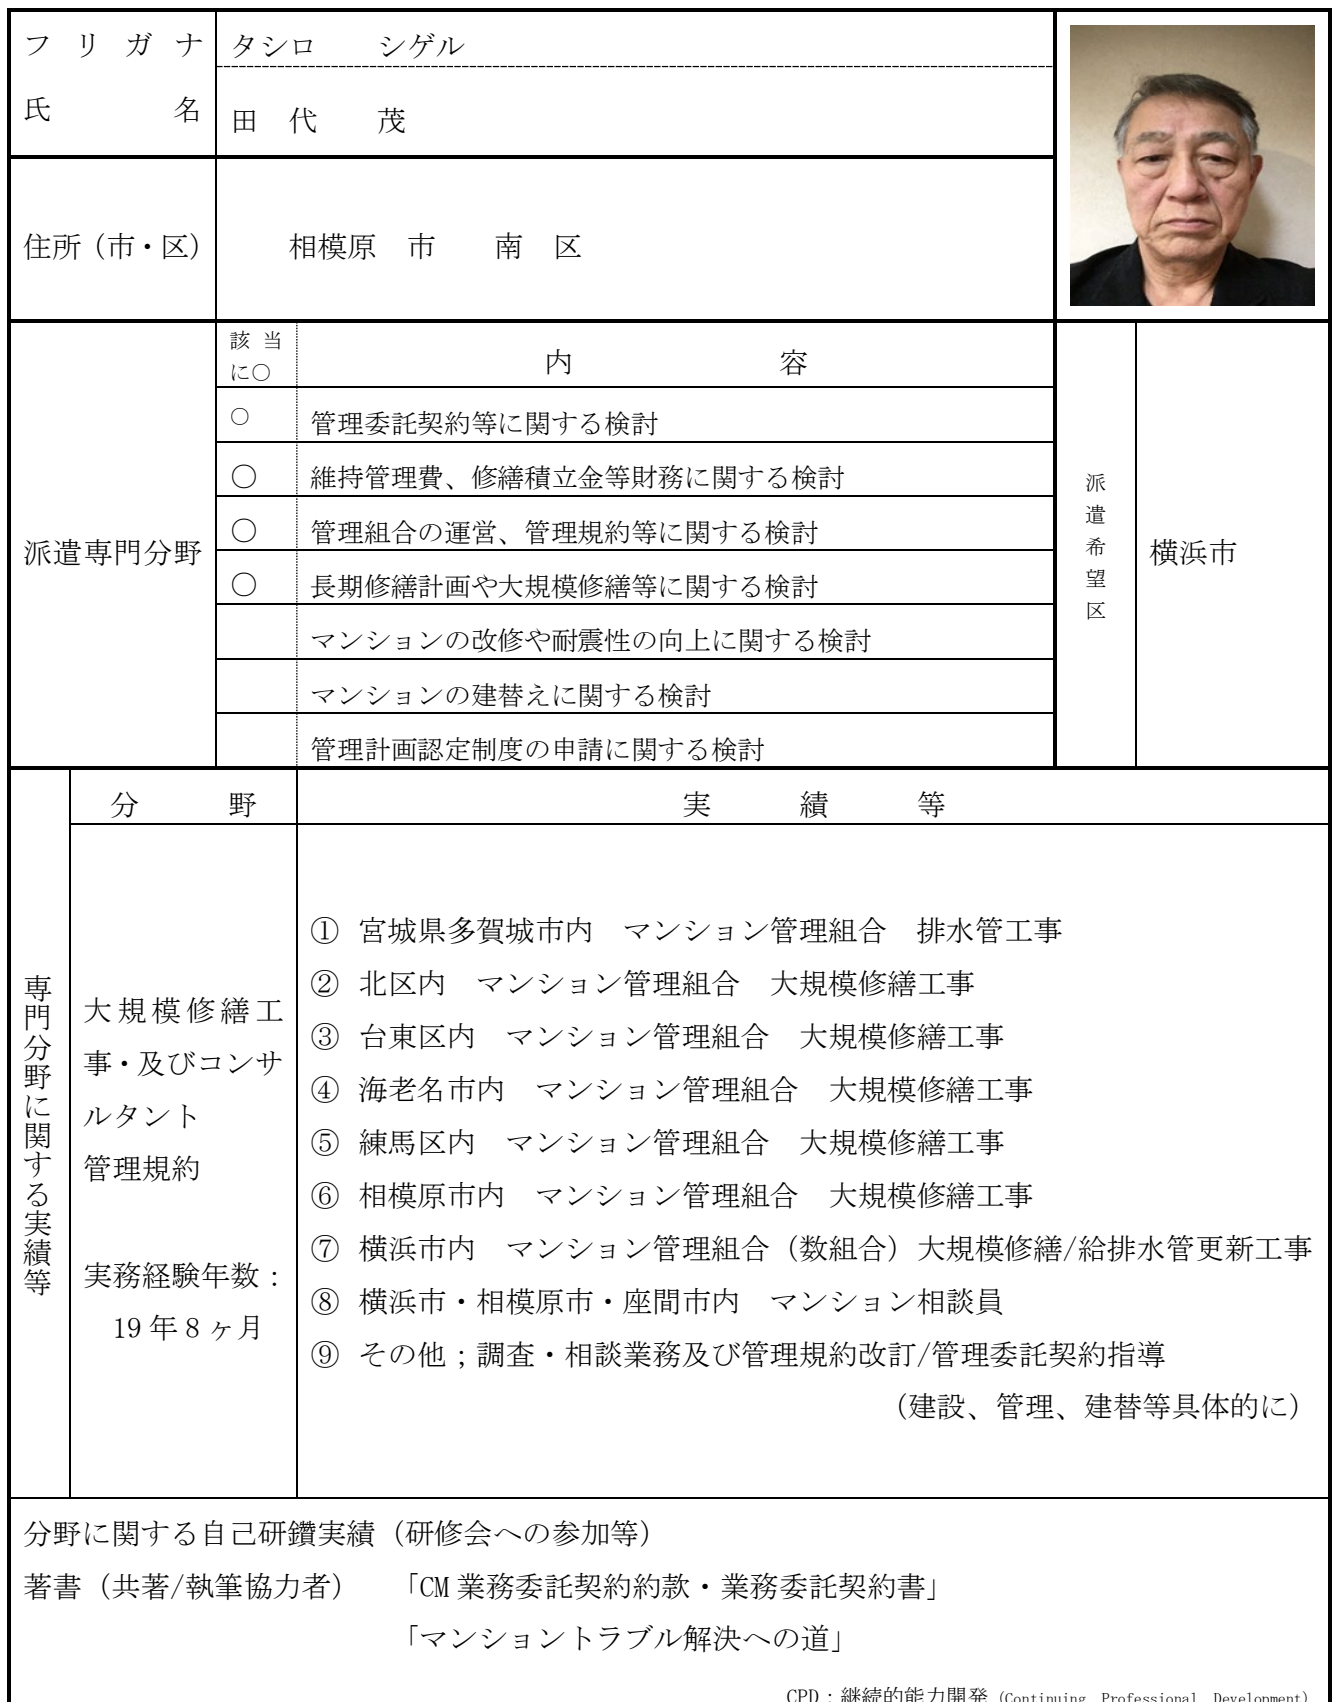 フリガナ
タシロ　　シゲル
氏　　　名
田　代　　茂
住所（市・区）
相模原　市　　南　区
派遣専門分野
該当に○
内　　　容
○
管理委託契約等に関する検討
○
維持管理費、修繕積立金等財務に関する検討
○
管理組合の運営、管理規約等に関する検討
○
長期修繕計画や大規模修繕等に関する検討
マンションの改修や耐震性の向上に関する検討
マンションの建替えに関する検討
管理計画認定制度の申請に関する検討
派遣希望区
横浜市
専門分野に関する実績等
分　　　野
実　　　績　　　等
大規模修繕工
事・及びコンサ
ルタント
管理規約
実務経験年数：
19年8ヶ月
① 宮城県多賀城市内　マンション管理組合　排水管工事
② 北区内　マンション管理組合　大規模修繕工事
③ 台東区内　マンション管理組合　大規模修繕工事
④ 海老名市内　マンション管理組合　大規模修繕工事
⑤ 練馬区内　マンション管理組合　大規模修繕工事
⑥ 相模原市内　マンション管理組合　大規模修繕工事
⑦ 横浜市内　マンション管理組合（数組合）大規模修繕/給排水管更新工事
⑧ 横浜市・相模原市・座間市内　マンション相談員
⑨ その他；調査・相談業務及び管理規約改訂/管理委託契約指導
（建設、管理、建替等具体的に）
分野に関する自己研鑽実績（研修会への参加等）
著書（共著/執筆協力者）　「CM業務委託契約約款・業務委託契約書」
「マンショントラブル解決への道」
CPD：継続的能力開発（Continuing Professional Development）